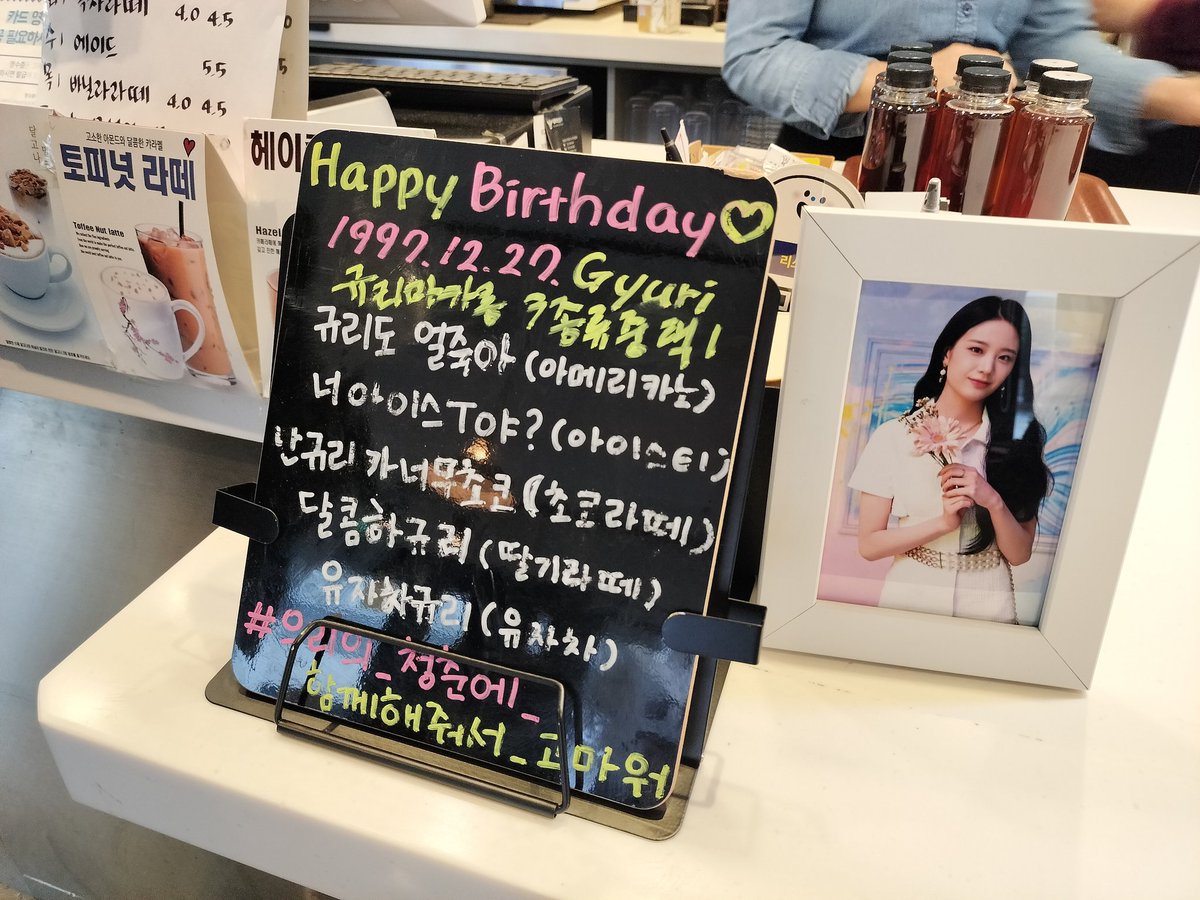 4.0 4.5
에이드
5.5
바닐라라떼 4.0 4.5
고소한 아몬드와 달콤한 카라멜
토피넛 라떼
Toffee Nut latte
헤이
Hazel
Happy Birthday
1997.12.27. Gyuri
규리마카롱 3종류중 택 1
규리도 얼죽아 (아메리카노)
너아이스T야? (아이스티)
난규리 카너무초코 (초코라떼)
달콤하규리 (딸기라떼)
유자차규리 (유자차)
#우리의_청춘에_
함께해줘서_고마워